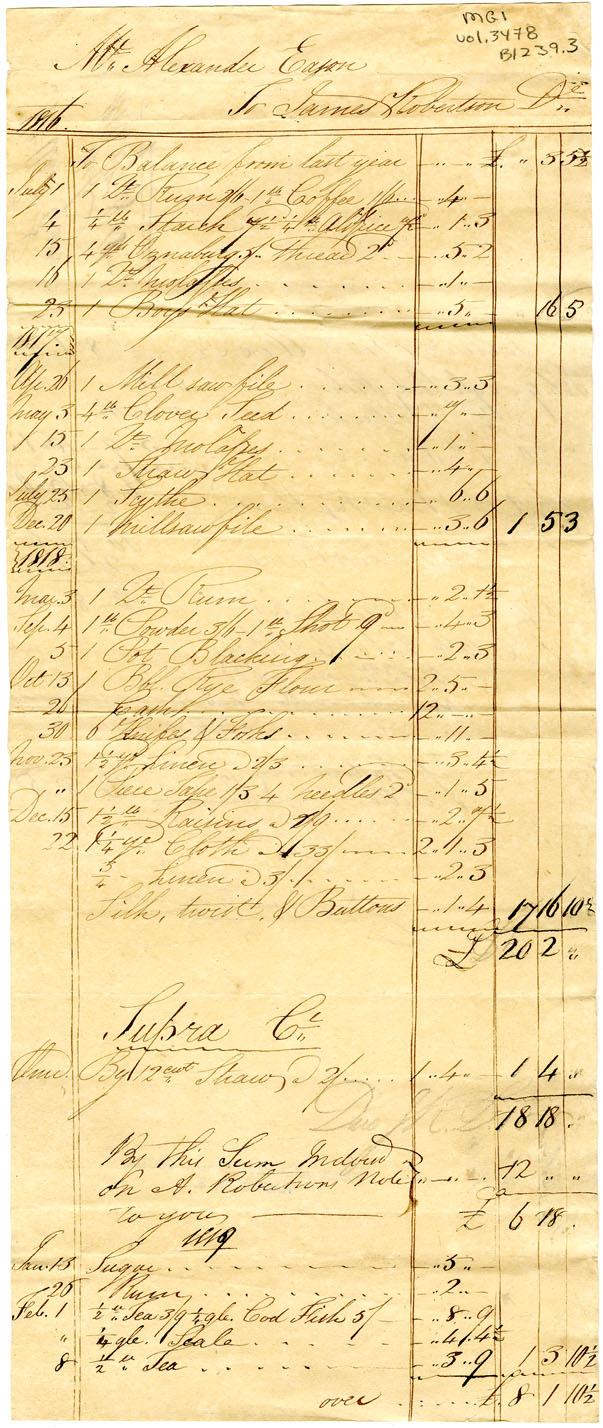 MG1
vol. 3478
B1239.3
Mr. Alexander Eason
To James Robertson Dr.
1816.
To Balance from last year - " - " - £ " 5 5½
July 1 1 Qt. Rum 2/6 1 lb Coffee 1/6 - " 4 " -
4 ¼ lb Starch 7½ ¼ lb Alspice 7½ - " 1 " 3
15 4 yds Oznaburgs thread 2d - " 5 " 2
16 1 Qt. Molasses - " 1 " -
23 1 Boys Hat - " 5 " - 16 5
1817
Ap. 26 1 Mill saw file - " 3 " 3
May 3 4 lb Clover Seed - " 7 " -
15 1 Qt. Molasses - " 1 " -
23 1 Straw Hat - " 4 " -
July 25 1 Scythe - " 6 " 6
Dec. 20 1 millsaw file - " 3 " 6 1 5 3
1818.
May. 3 1 Qt. Rum - " 2 " 1½
Sep. 4 1 lb Powder 3/6 1 lb Shot 9d - " 4 " 3
5 1 Pot Blacking - " 2 " 3
Oct 13 1 Bbl. Rye Flour 2 " 5 " -
26 Cash 12 " - " -
30 6 Knifes & Forks - " 11 " -
Nov. 23 1½ yd Linen @ 2/3 - " 3 " 4½
" 1 Piece Tape 1/3 4 needles 2d - " 1 " 5
Dec. 15 1½ lb Raisins @ 1/9 - " 2 " 7½
22 1¼ yd Cloth @ 33/ 2 " 1 " 3
¾ - Linen @ 3/ - " 2 " 3
Silk, twist, & Buttons - " 1 " 4 17 16 10½
£ 20 2 "
Supra Cr.
By 12 cwt Straw @ 2/ 1 " 4 " - 1 4 "
Due 18 18 "
By this Sum Indord
on A. Robertsons Note " - " - 12 " "
to you £ 6 18 "
1819
Jan. 13 Sugar - " 5 " -
26 Rum - " 2 " -
Feb. 1 ½ lb Tea 3/9 ¼ qle. Cod Fish 5/ - " 8 " 9
" ¼ qle. Scale - " 4 " 4½
8 ½ lb Tea - " 3 " 9 1 3 10½
over £ 8 1 10½